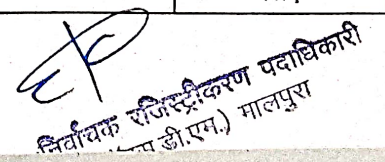 निर्वाचक रजिस्ट्रीकरण पदाधिकारी
डी.एम.) मालपुरा